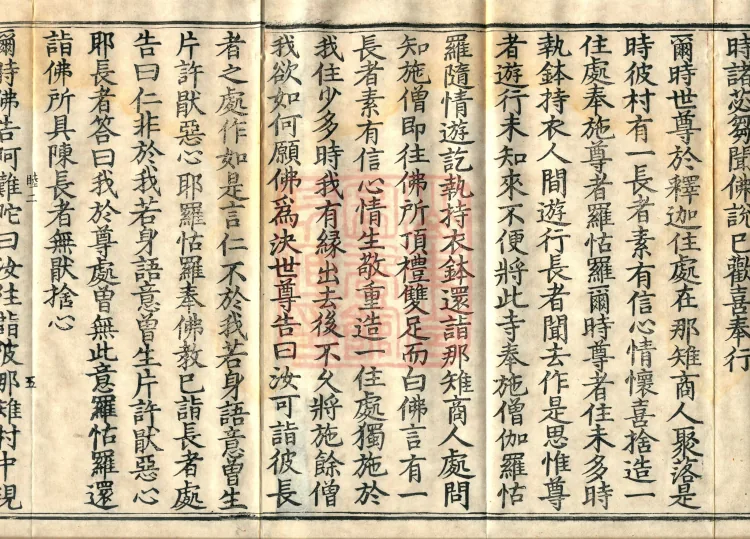 時諸苾芻聞佛說已歡喜奉行
爾時世尊於釋迦住處在那雉商人聚落是
時彼村有一長者素有信心情懷喜捨造一
住處奉施尊者羅怙羅爾時尊者住未多時
執鉢持衣人間遊行長者聞去作是思惟尊
者遊行未知來不便將此寺奉施僧伽羅怙
羅隨情遊訖執持衣鉢還詣那雉商人處問
知施僧即往佛所頂禮雙足而白佛言有一
長者素有信心情生敬重造一住處獨施於
我住少多時我有緣出去後不久將施餘僧
我欲如何願佛爲決世尊告曰汝可詣彼長
者之處作如是言仁不於我若身語意曾生
片許猒惡心耶羅怙羅奉佛教已詣長者處
告曰仁非於我若身語意曾生片許猒惡心
耶長者答曰我於尊處曾無此意羅怙羅還
詣佛所具陳長者無猒捨心
睦二
五
爾時佛告阿難陀曰汝往詣彼那雉村中現